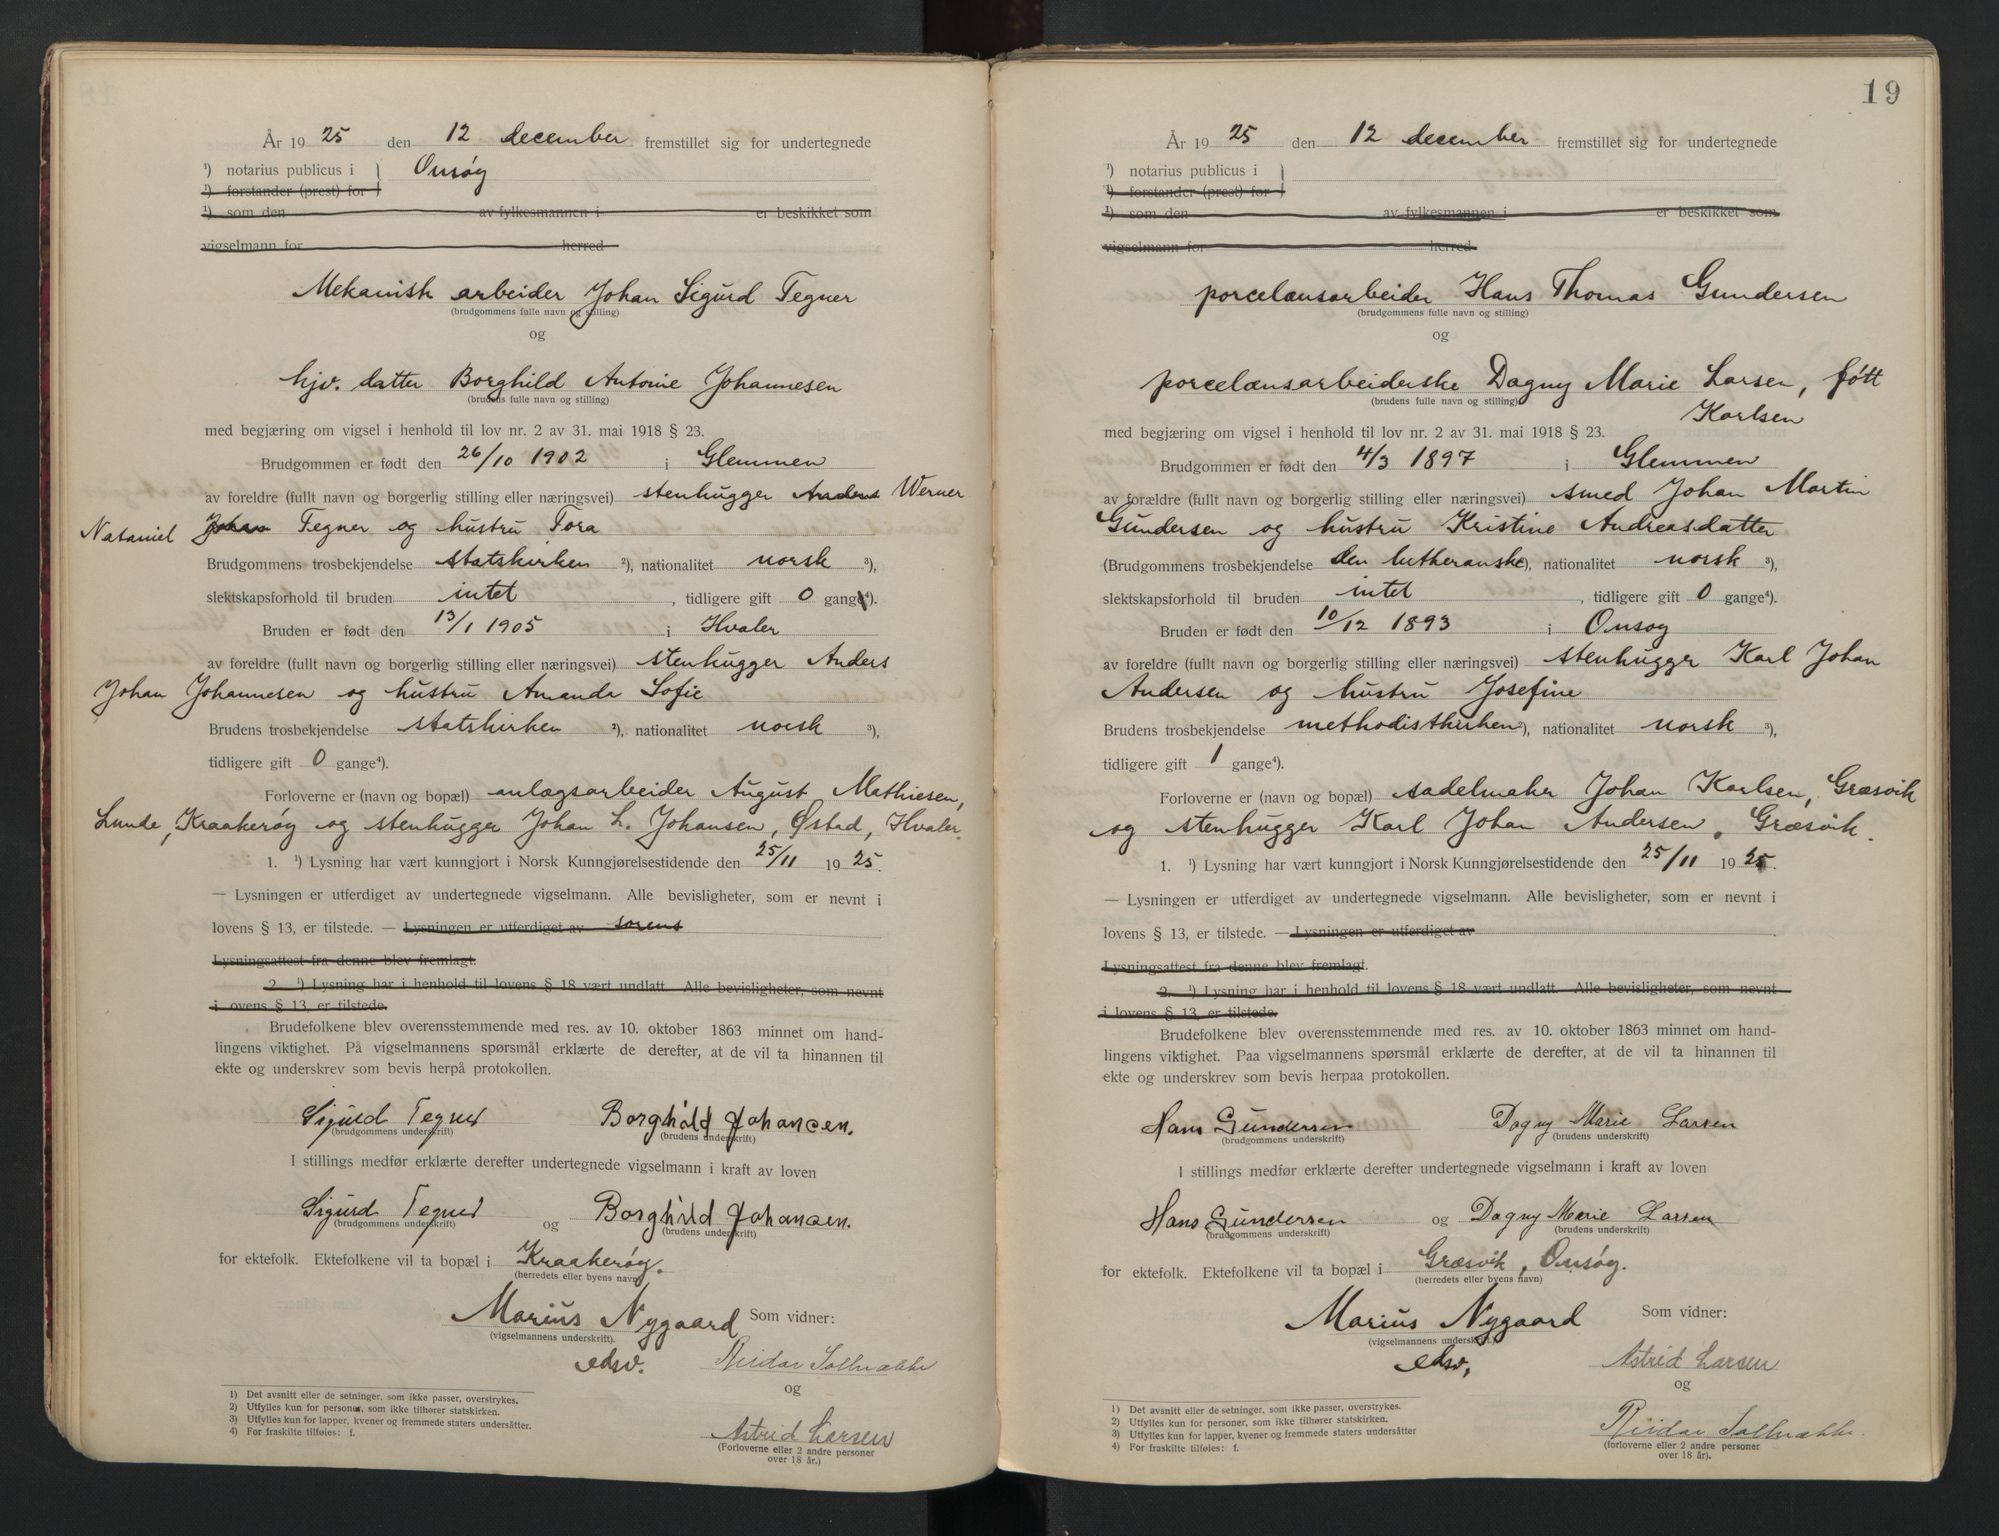 År 1925 den 12 december fremstillet sig for undertegnede
¹) notarius publicus i } Onsøy
¹) forstander (prest) for
¹) som den av fylkesmannen i er beskikket som
vigselmann for herred
Mekanisk arbeider Johan Sigurd Tegner
(brudgommens fulle navn og stilling)
og
hjv. datter Borghild Antonie Johannesen
(brudens fulle navn og stilling)
med begjæring om vigsel i henhold til lov nr. 2 av 31. mai 1918 § 23.
Brudgommen er født den 26/10 1902 i Glemmen
av foreldre (fullt navn og borgerlig stilling eller næringsvei) stenhugger Anders Werner
Nataniel Johan Tegner og hustru Tora
Brudgommens trosbekjendelse statskirken ²), nationalitet norsk ³),
slektskapsforhold til bruden intet, tidligere gift 0 gange⁴).
Bruden er født den 13/1 1905 i Hvaler
av foreldre (fullt navn og borgerlig stilling eller næringsvei) stenhugger Anders
Johan Johannesen og hustru Amanda Sofie
Brudens trosbekjendelse statskirken ²), nationalitet norsk ³),
tidligere gift 0 gange⁴).
Forloverne er (navn og bopæl) anlægsarbeider August Mathiesen,
Lunde, Kraakerøy og stenhugger Johan L. Johansen, Østad, Hvaler.
1. ¹) Lysning har vært kunngjort i Norsk Kunngjørelsestidende den 25/11 1925.
— Lysningen er utferdiget av undertegnede vigselmann. Alle bevisligheter, som er nevnt i
lovens § 13, er tilstede. — Lysningen er utferdiget av sorens
Lysningsattest fra denne blev fremlagt.
2. ¹) Lysning har i henhold til lovens § 18 vært undlatt. Alle bevisligheter, som nevnt
i ovens § 13, er tilstede.
Brudefolkene blev overensstemmende med res. av 10. oktober 1863 minnet om hand-
lingens viktighet. På vigselmannens spørsmål erklærte de derefter, at de vil ta hinannen til
ekte og underskrev som bevis herpå protokollen.
Sigurd Tegner Borghild Johansen.
(brudgommens underskrift) (brudens underskrift)
I stillings medfør erklærte derefter undertegnede vigselmann i kraft av loven
Sigurd Tegner og Borghild Johansen.
(brudgommens underskrift) (brudens underskrift)
for ektefolk. Ektefolkene vil ta bopæl i Kraakerøy.
(herredets eller byens navn)
Marius Nygaard Som vidner:
(vigselmannens underskrift).
edsv. Reidar Solbrække
og
Astrid Larsen
(Forloverne eller 2 andre personer
over 18 år.)
1) Det avsnitt eller de setninger, som ikke passer, overstrykes.
2) Utfylles kun for personer, som ikke tilhører statskirken.
3) Utfylles kun for lapper, kvener og fremmede staters undersåtter.
4) For fraskilte tilføies: f.
19
År 1925 den 12 december fremstillet sig for undertegnede
¹) notarius publicus i }
¹) forstander (prest) for
¹) som den av fylkesmannen i er beskikket som
vigselmann for herred
porcelænsarbeider Hans Thomas Gundersen
(brudgommens fulle navn og stilling)
og
porcelænsarbeiderske Dagny Marie Larsen, født
(brudens fulle navn og stilling) Karlsen
med begjæring om vigsel i henhold til lov nr. 2 av 31. mai 1918 § 23.
Brudgommen er født den 4/3 1897 i Glemmen
av forældre (fullt navn og borgerlig stilling eller næringsvei) smed Johan Martin
Gundersen og hustru Kristine Andreasdatter
(Brudgommens trosbekjendelse den lutheranske), nationalitet norsk ³),
slektskapsforhold til bruden intet, tidligere gift 0 gange⁴).
Bruden er født den 10/12 1893 i Onsøy
av foreldre (fullt navn og borgerlig stilling eller næringsvei) stenhugger Karl Johan
Andersen og hustru Josefine
Brudens trosbekjendelse methodistkirken ²), nationalitet norsk ³),
tidligere gift 1 gange⁴).
Forloverne er (navn og bopæl) sadelmaker Johan Karlsen, Græsvik
og stenhugger Karl Johan Andersen, Græsvik.
1. ¹) Lysning har vært kunngjort i Norsk Kunngjørelsestidende den 25/11 1925.
— Lysningen er utferdiget av undertegnede vigselmann. Alle bevisligheter, som er nevnt i
lovens § 13, er tilstede. — Lysningen er utferdiget av
Lysningsattest fra denne blev fremlagt.
2. ¹) Lysning har i henhold til lovens § 18 vært undlatt. Alle bevisligheter, som nevnt
i lovens § 13, er tilstede.
Brudefolkene blev overensstemmende med res. av 10. oktober 1863 minnet om hand-
lingens viktighet. Paa vigselmannens spørsmål erklærte de derefter, at de vil ta hinannen til
ekte og underskrev som bevis herpaa protokollen.
Hans Gundersen Dagny Marie Larsen
(brudgommens underskrift) (brudens underskrift)
I stillings medfør erklærte derefter undertegnede vigselmann i kraft av loven
Hans Gundersen og Dagny Marie Larsen
(brudgommens underskrift) (brudens underskrift)
for ektefolk. Ektefolkene vil ta bopæl i Græsvik, Onsøy.
(herredets eller byens navn)
Marius Nygaard Som vidner:
(vigselmannens underskrift.)
edsv. Astrid Larsen
og
Reidar Solbrække.
(forloverne eller 2 andre personer
over 18 år).
1) Det avsnitt eller de setninger, som ikke passer, overstrykes.
2) Utfylles kun for personer, som ikke tilhører statskirken.
3) Utfylles kun for lapper, kvener og fremmede staters undersåtter
4) For fraskilte tilføies: f.